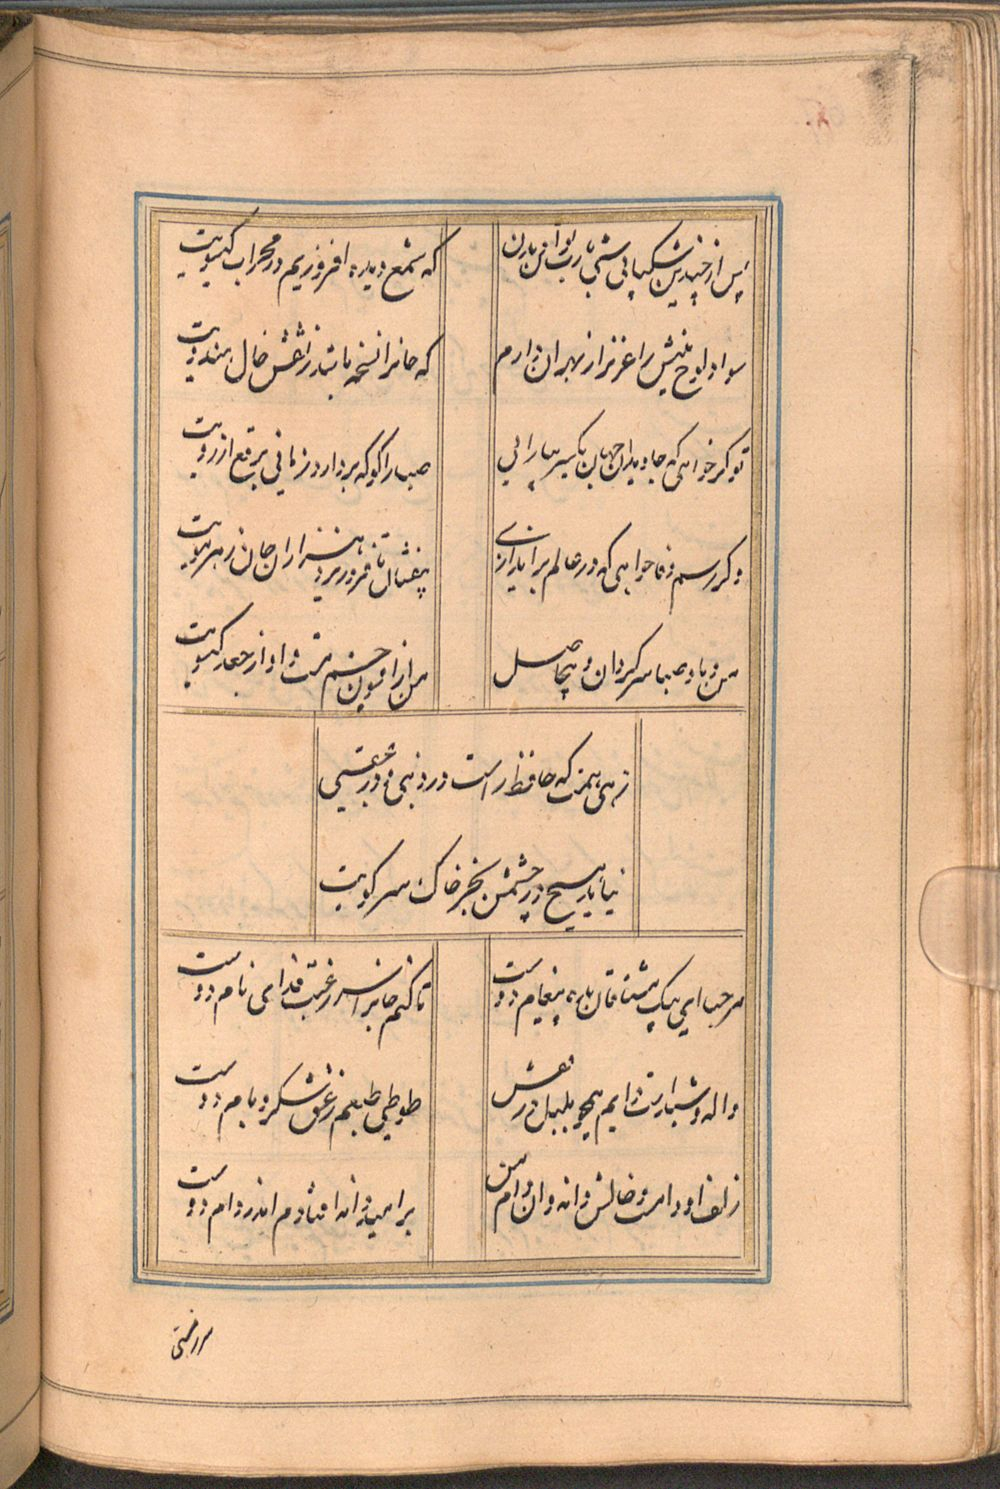 پس از چندین شکیبائی شبی یارب توان دیدن
که شمع دیده افروزیم در محراب ابرویت
سواد لوح بینش را عزیز از بهر آن دارم
که جانرا نسخه باشد ز نقش خال هندویت
تو گر خواهی که جاویدان جهان یکسر بیارائی
صبا را گو که بردارد زمانی برقع از رویت
وگر رسم وفا خواهی که در عالم براندازی
بیفشان تا فرو ریزد هزاران جان ز هر مویت
من و باد صبا سرگردان و بیحاصل
من از افسون چشم مست و او از جعد گیسویت
زهی همت که حافظ راست در دنیی و در عقبی
نیاید هیچ در چشمش بجز خاک سر کویت
مرحبا ای پیک مشتاقان بده پیغام دوست
تا کنم جان از سر رغبت فدای نام دوست
واله و شیداست دایم همچو بلبل در قفس
طوطی طبعم ز عشق شکر و بادام دوست
زلف او دامست و خالش دانه و آن دام من
بر امید دانه افتادم اندر دام دوست
سر ز مستی